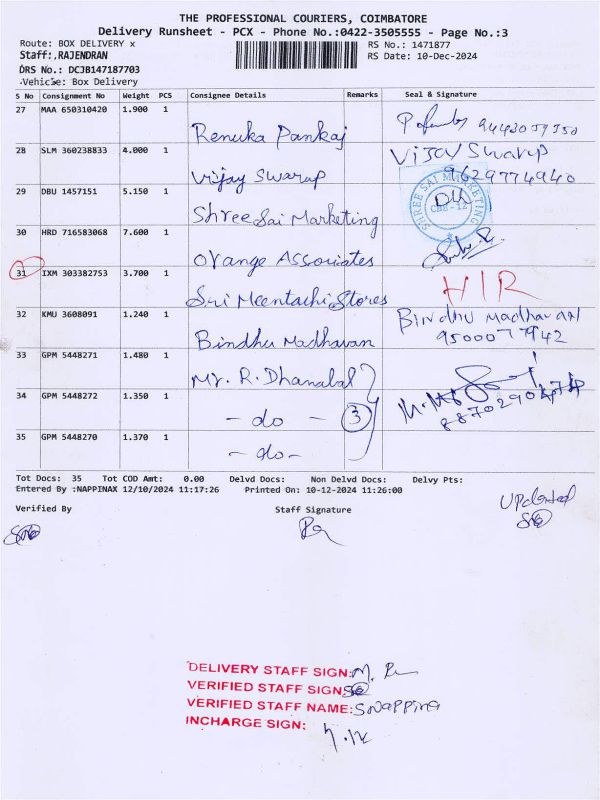 THE PROFESSIONAL COURIERS, COIMBATORE
Delivery Runsheet - PCX - Phone No.:0422-3505555 - Page No.:3
Route: BOX DELIVERY x RS No.: 1471877
Staff:,RAJENDRAN RS Date: 10-Dec-2024
DRS No.: DCJB147187703
Vehicle: Box Delivery
S No Consignment No Weight PCS Consignee Details Remarks Seal & Signature
27 MAA 650310420 1.900 1
Renuka Pankaj
28 SLM 360238833 4.000 1 Vijay Swarup
Vijay Swarup 9629774940
29 DBU 1457151 5.150 1
Shree Sai Marketing SHREE SAI MARKETING CBE-12
30 HRD 716583068 7.600 1
Orange Associates
31 IXM 303382753 3.700 1 H/R
Sri Meentachi Stores
32 KMU 3608091 1.240 1 Bindhu Madhavan
Bindhu Madhavan 9500077942
33 GPM 5448271 1.480 1
Mr. R. Dhanabal
34 GPM 5448272 1.350 1
- do - 3
35 GPM 5448270 1.370 1
- do -
Tot Docs: 35 Tot COD Amt: 0.00 Delvd Docs: Non Delvd Docs: Delvy Pts:
Entered By :NAPPINAX 12/10/2024 11:17:26 Printed On: 10-12-2024 11:26:00
Verified By Staff Signature Updated
DELIVERY STAFF SIGN:
VERIFIED STAFF SIGN:
VERIFIED STAFF NAME:
INCHARGE SIGN: